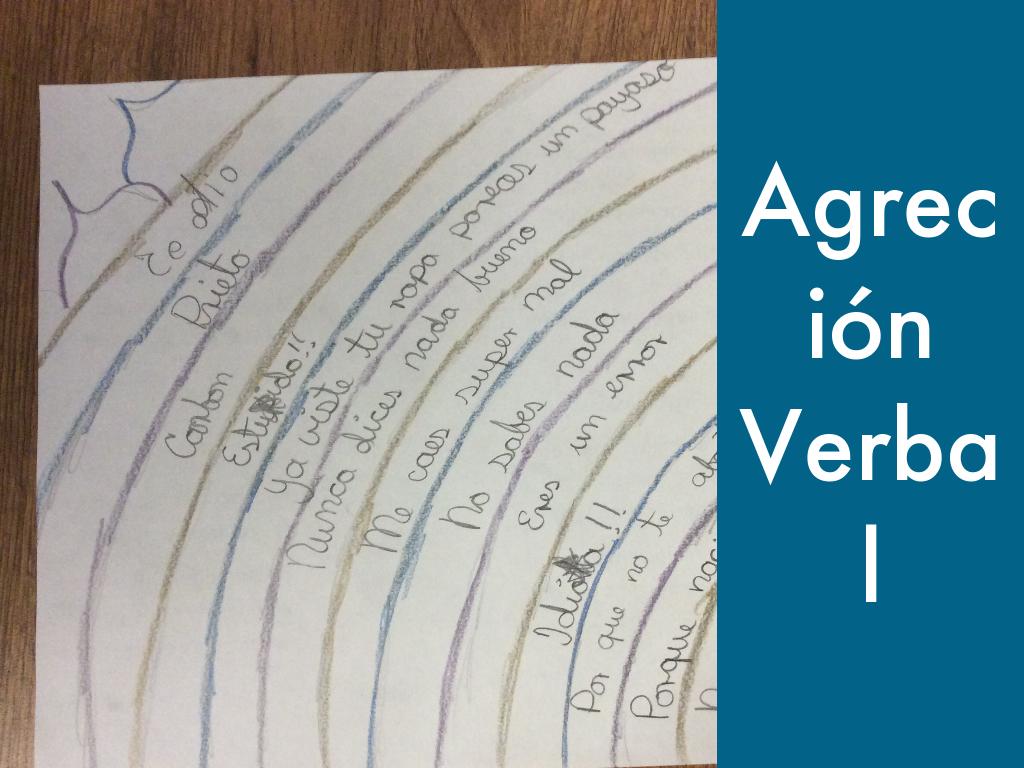 Te odio
Prieto
Carbon
Estupido!!
Ya viste tu ropa pareces un payaso
Nunca dices nada bueno
Me caes super mal
No sabes nada
Eres un error
Idiota!!
Por que no te
Porque
Agrec
ión
Verba
l